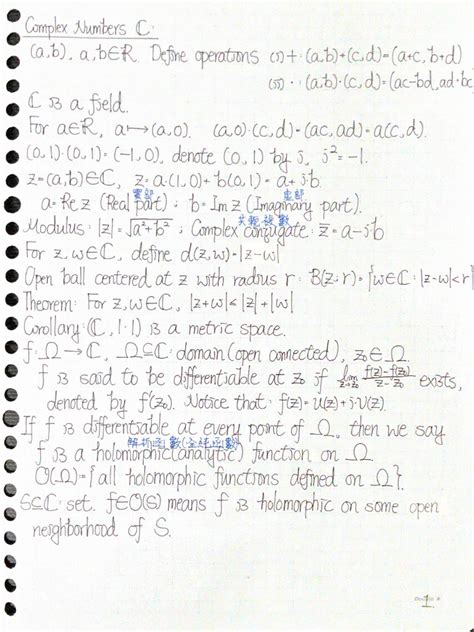 Complex Numbers ℂ:
(a,b), a,b∈ℝ. Define operations (i) +: (a,b)+(c,d)=(a+c, b+d)
(ii) ·: (a,b)·(c,d)=(ac-bd, ad+bc)
ℂ is a field.
For a∈ℝ, a↦(a,0). (a,0)·(c,d)=(ac,ad)=a(c,d).
(0,1)·(0,1)=(-1,0), denote (0,1) by i, i²=-1.
z=(a,b)∈ℂ, z=a·(1,0)+b(0,1)=a+i·b.
實部 虛部
a=Re z (Real part); b=Im z (Imaginary part).
共軛複數
Modulus: |z|=√(a²+b²); Complex conjugate: z̅=a-i·b
For z,w∈ℂ, define d(z,w)=|z-w|
Open ball centered at z with radius r: B(z;r)={w∈ℂ:|z-w|<r}
Theorem: For z,w∈ℂ, |z+w|≤|z|+|w|
Corollary: (ℂ,|·|) is a metric space.
f:Ω→ℂ, Ω⊆ℂ: domain(open connected), z₀∈Ω.
f is said to be differentiable at z₀ if lim z→z₀ (f(z)-f(z₀))/(z-z₀) exists,
denoted by f'(z₀). Notice that: f(z)=u(z)+i·v(z)
If f is differentiable at every point of Ω, then we say
解析函數(全純函數)
f is a holomorphic(analytic) function on Ω
O(Ω)={all holomorphic functions defined on Ω}.
S⊆ℂ: set. f∈O(S) means f is holomorphic on some open
neighborhood of S.
1